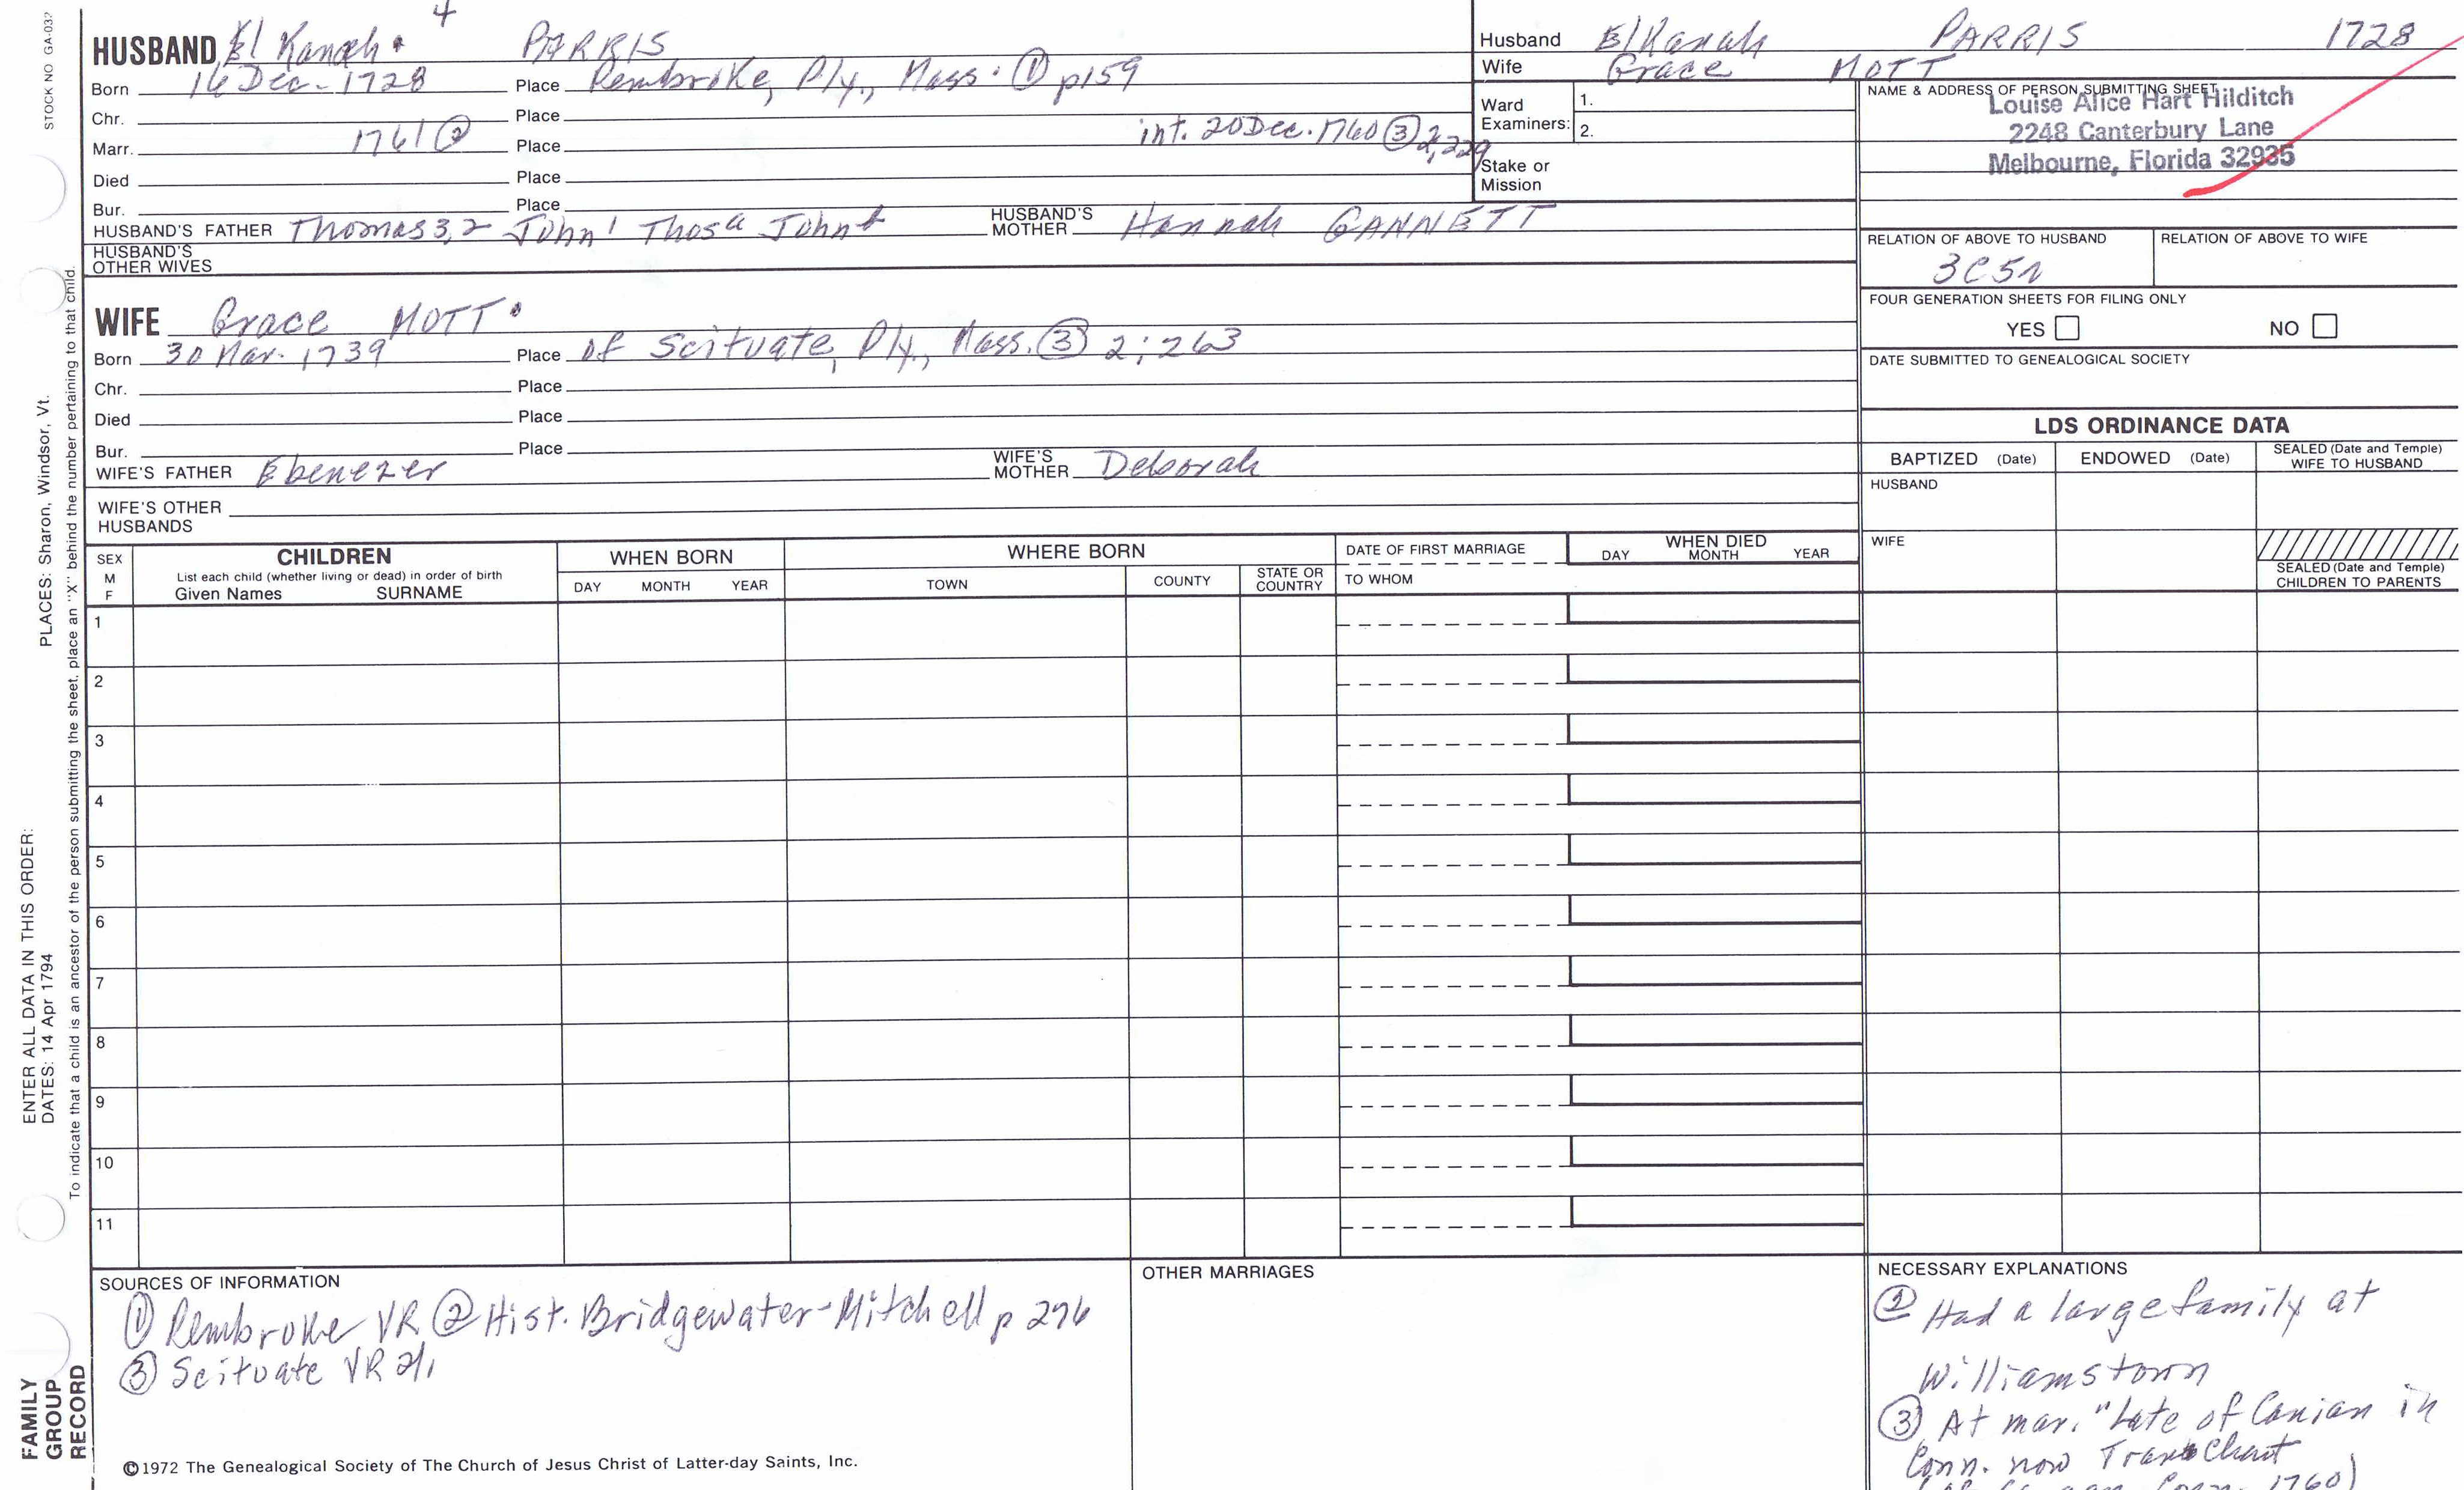 STOCK NO GA-032
4
HUSBAND El Kanah PARRIS
Born 16 Dec. 1728 Place Pembroke, Ply., Mass. ① p159
Chr. Place
Marr. 1761 ② Place int. 20 Dec. 1760 ③ 2,229
Died Place
Bur. Place
HUSBAND'S FATHER Thomas 3,2 John1 Thosa John+ HUSBAND'S MOTHER Hannah GANNETT
HUSBAND'S OTHER WIVES
Husband ElKanah PARRIS 1728
Wife Grace MOTT
Ward Examiners: 1.
2.
Stake or Mission
NAME & ADDRESS OF PERSON SUBMITTING SHEET
Louise Alice Hart Hilditch
2248 Canterbury Lane
Melbourne, Florida 32935
RELATION OF ABOVE TO HUSBAND RELATION OF ABOVE TO WIFE
3C5r
FOUR GENERATION SHEETS FOR FILING ONLY
YES NO
DATE SUBMITTED TO GENEALOGICAL SOCIETY
WIFE Grace MOTT
Born 30 Mar. 1739 Place of Scituate, Ply., Mass. ③ 2:263
Chr. Place
Died Place
Bur. Place
WIFE'S FATHER Ebenezer WIFE'S MOTHER Deborah
WIFE'S OTHER HUSBANDS
LDS ORDINANCE DATA
BAPTIZED (Date) ENDOWED (Date) SEALED (Date and Temple) WIFE TO HUSBAND
HUSBAND
WIFE
SEALED (Date and Temple) CHILDREN TO PARENTS
SEX M F CHILDREN WHEN BORN WHERE BORN DATE OF FIRST MARRIAGE WHEN DIED
List each child (whether living or dead) in order of birth
Given Names SURNAME DAY MONTH YEAR TOWN COUNTY STATE OR COUNTRY TO WHOM DAY MONTH YEAR
1
2
3
4
5
6
7
8
9
10
11
SOURCES OF INFORMATION
① Pembroke VR ② Hist. Bridgewater-Mitchell p 276
③ Scituate VR
OTHER MARRIAGES
NECESSARY EXPLANATIONS
② Had a large family at
Williamstown
③ At mar. "Late of Canian in
Conn. now
1760)
©1972 The Genealogical Society of The Church of Jesus Christ of Latter-day Saints, Inc.
PLACES: Sharon, Windsor, Vt.
ENTER ALL DATA IN THIS ORDER:
DATES: 14 Apr 1794
To indicate that a child is an ancestor of the person submitting the sheet, place an "X" behind the number pertaining to that child.
FAMILY
GROUP
RECORD